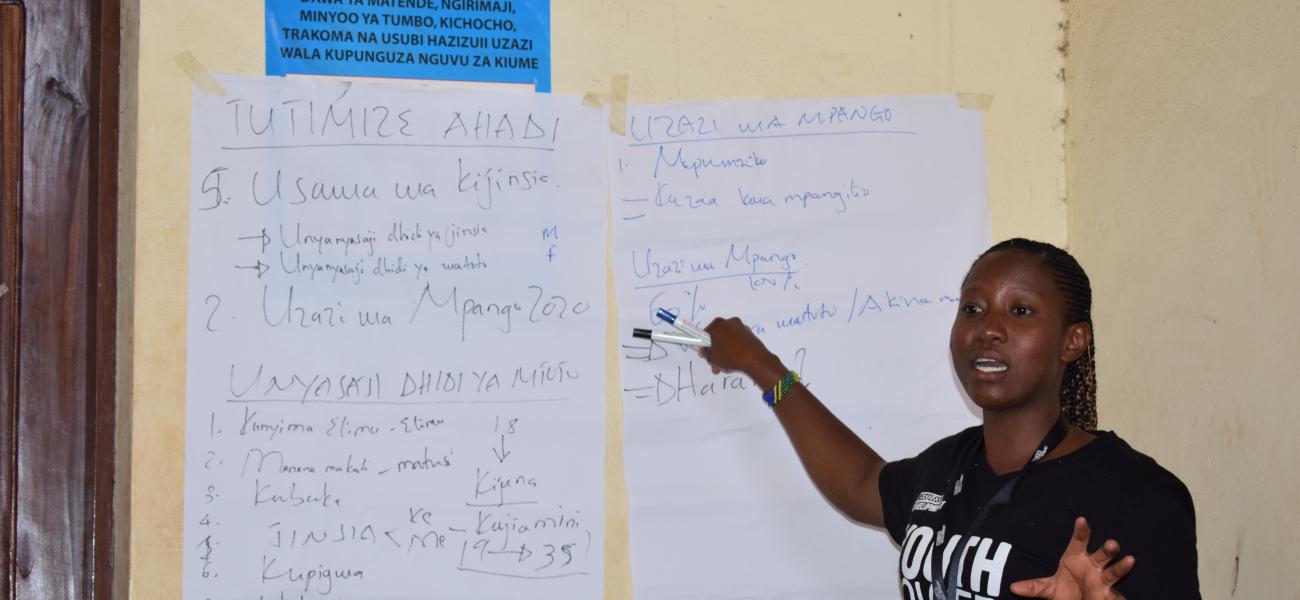 DAWA YA MATENDE, NGIRIMAJI,
MINYOO YA TUMBO, KICHOCHO,
TRAKOMA NA USUBI HAZIZUII UZAZI
WALA KUPUNGUZA NGUVU ZA KIUME
TUTIMIZE AHADI
5. Usawa wa kijinsia.
→ Unyanyasaji dhidi ya jinsia M
→ Unyanyasaji dhidi ya watoto f
2. Uzazi wa Mpango 2020
UNYASAJI DHIDI YA
1. Kunyima Elimu - Elimu 18
2. Maneno makali - matusi
3. Kubaka Kijana
4.
5. JINSIA < Ke Me - Kujiamini
19 → 35
6. Kupigwa
UZAZI WA MPANGO
1. Mapumziko
= Kuzaa kwa mpangilio
Uzazi wa Mpango.
100%
watoto / Akina
YOUTH